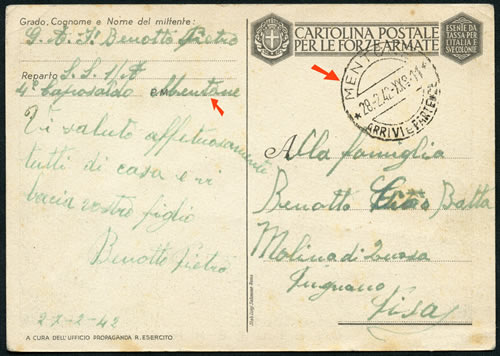 Grado, Cognome e Nome del mittente:
G. A. F. Benotto Pietro
Reparto S. S. 11/A
4° Caposaldo P.M. Mentone
Vi saluto affetuosamente
tutti di casa e vi
bacia vostro figlio
Benotto Pietro
27-2-42
A CURA DELL'UFFICIO PROPAGANDA R. ESERCITO
CARTOLINA POSTALE
PER LE FORZE ARMATE
ESENTE DA
TASSA PER
L'ITALIA E
SUE COLONIE
28.2.42.XX
ARRIVI E PARTENZE
Alla famiglia
Benotto Batta
Molina di Quosa
Pugnano
Pisa